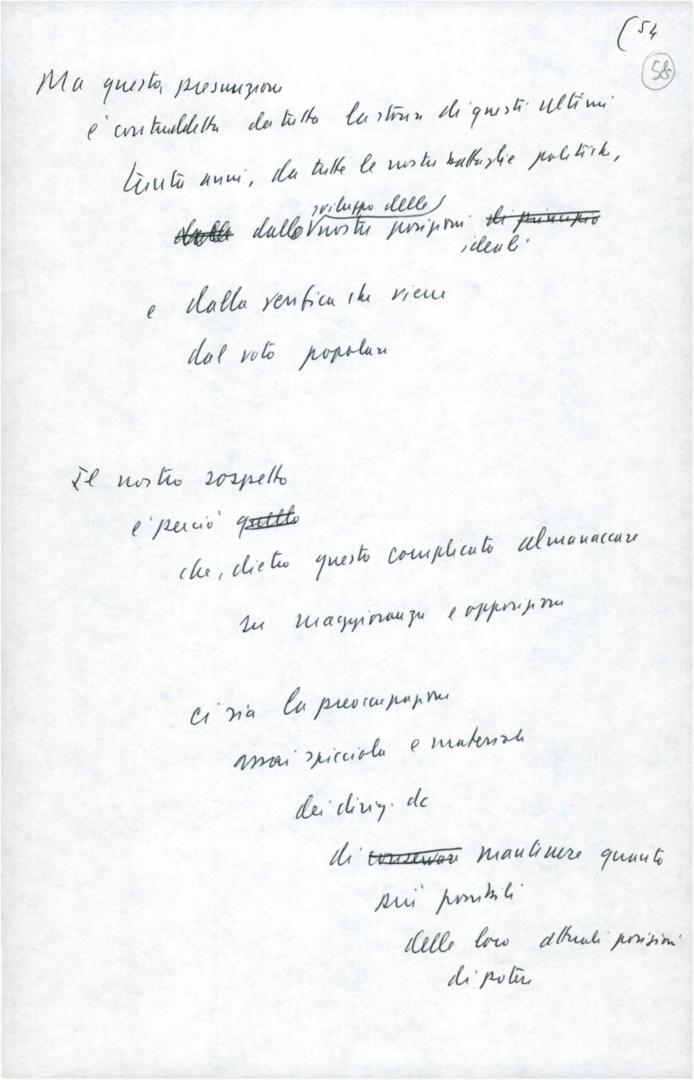 (54
58
Ma questa presunzione
è contraddetta da tutta la storia di questi ultimi
trenta anni, da tutte le nostre battaglie politiche,
sviluppo delle
dalle dallo nostre posizioni di principio
ideali
e dalla verifica che viene
dal voto popolare
Il nostro sospetto
è perciò quello
che, dietro questo complicato almanaccare
su maggioranza e opposizione
ci sia la preoccupazione
assai spicciola e materiale
dei dirig. dc
di conservare mantenere quanto
più possibile
delle loro attuali posizioni
di potere